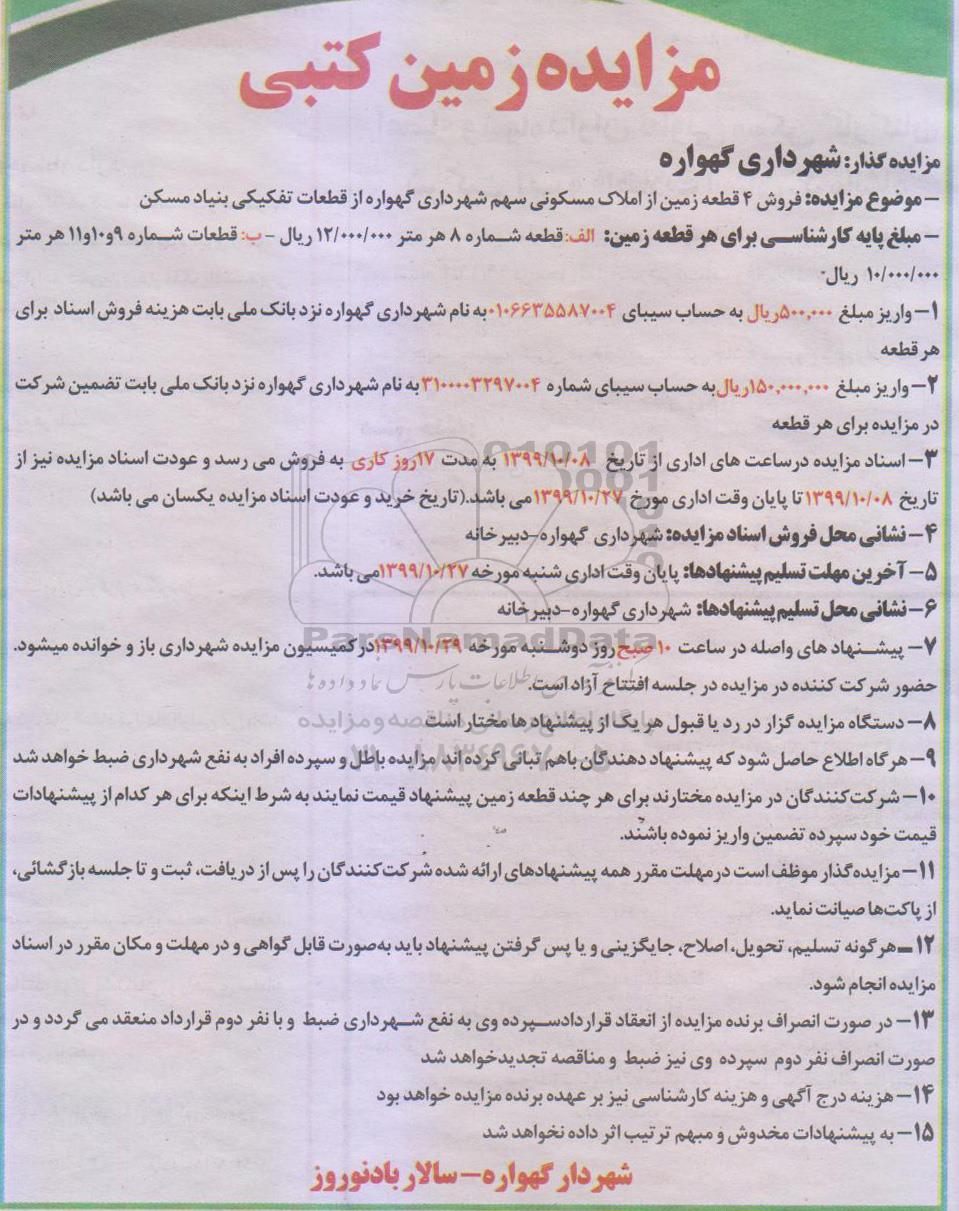 مزایده زمین کتبی
مزایده گذار: شهرداری گهواره
- موضوع مزایده: فروش ۴ قطعه زمین از املاک مسکونی سهم شهرداری گهواره از قطعات تفکیکی بنیاد مسکن
- مبلغ پایه کارشناسی برای هر قطعه زمین: الف: قطعه شماره ۸ هر متر ۱۲/۰۰۰/۰۰۰ ریال - ب: قطعات شماره ۹و۱۰و۱۱ هر متر
۱۰/۰۰۰/۰۰۰ ریال
۱- واریز مبلغ ۵۰۰,۰۰۰ریال به حساب سیبای ۰۱۰۶۶۳۵۵۸۷۰۰۴به نام شهرداری گهواره نزد بانک ملی بابت هزینه فروش اسناد برای
هر قطعه
۲- واریز مبلغ ۱۵۰,۰۰۰,۰۰۰ریال به حساب سیبای شماره ۳۱۰۰۰۰۳۲۹۷۰۰۴ به نام شهرداری گهواره نزد بانک ملی بابت تضمین شرکت
در مزایده برای هر قطعه
۳- اسناد مزایده درساعت های اداری از تاریخ ۱۳۹۹/۱۰/۰۸ به مدت ۱۷روز کاری به فروش می رسد و عودت اسناد مزایده نیز از
تاریخ ۱۳۹۹/۱۰/۰۸ تا پایان وقت اداری مورخ ۱۳۹۹/۱۰/۲۷می باشد.(تاریخ خرید و عودت اسناد مزایده یکسان می باشد)
۴- نشانی محل فروش اسناد مزایده: شهرداری گهواره-دبیرخانه
۵- آخرین مهلت تسلیم پیشنهادها: پایان وقت اداری شنبه مورخه ۱۳۹۹/۱۰/۲۷می باشد.
۶- نشانی محل تسلیم پیشنهادها: شهرداری گهواره-دبیرخانه
۷- پیشنهاد های واصله در ساعت ۱۰ صبح روز دوشنبه مورخه ۱۳۹۹/۱۰/۲۹درکمیسیون مزایده شهرداری باز و خوانده میشود.
حضور شرکت کننده در مزایده در جلسه افتتاح آزاد است.
۸- دستگاه مزایده گزار در رد یا قبول هر یک از پیشنهاد ها مختار است
۹- هرگاه اطلاع حاصل شود که پیشنهاد دهندگان باهم تبانی کرده اند مزایده باطل و سپرده افراد به نفع شهرداری ضبط خواهد شد
۱۰- شرکت‌کنندگان در مزایده مختارند برای هر چند قطعه زمین پیشنهاد قیمت نمایند به شرط اینکه برای هر کدام از پیشنهادات
قیمت خود سپرده تضمین واریز نموده باشند.
۱۱- مزایده‌گذار موظف است درمهلت مقرر همه پیشنهادهای ارائه شده شرکت‌کنندگان را پس از دریافت، ثبت و تا جلسه بازگشائی،
از پاکت‌ها صیانت نماید.
۱۲- هرگونه تسلیم، تحویل، اصلاح، جایگزینی و یا پس گرفتن پیشنهاد باید به‌صورت قابل گواهی و در مهلت و مکان مقرر در اسناد
مزایده انجام شود.
۱۳- در صورت انصراف برنده مزایده از انعقاد قراردادسپرده وی به نفع شهرداری ضبط و با نفر دوم قرارداد منعقد می گردد و در
صورت انصراف نفر دوم سپرده وی نیز ضبط و مناقصه تجدیدخواهد شد
۱۴- هزینه درج آگهی و هزینه کارشناسی نیز بر عهده برنده مزایده خواهد بود
۱۵- به پیشنهادات مخدوش و مبهم ترتیب اثر داده نخواهد شد
شهردار گهواره - سالار بادنوروز
ParsNamadData